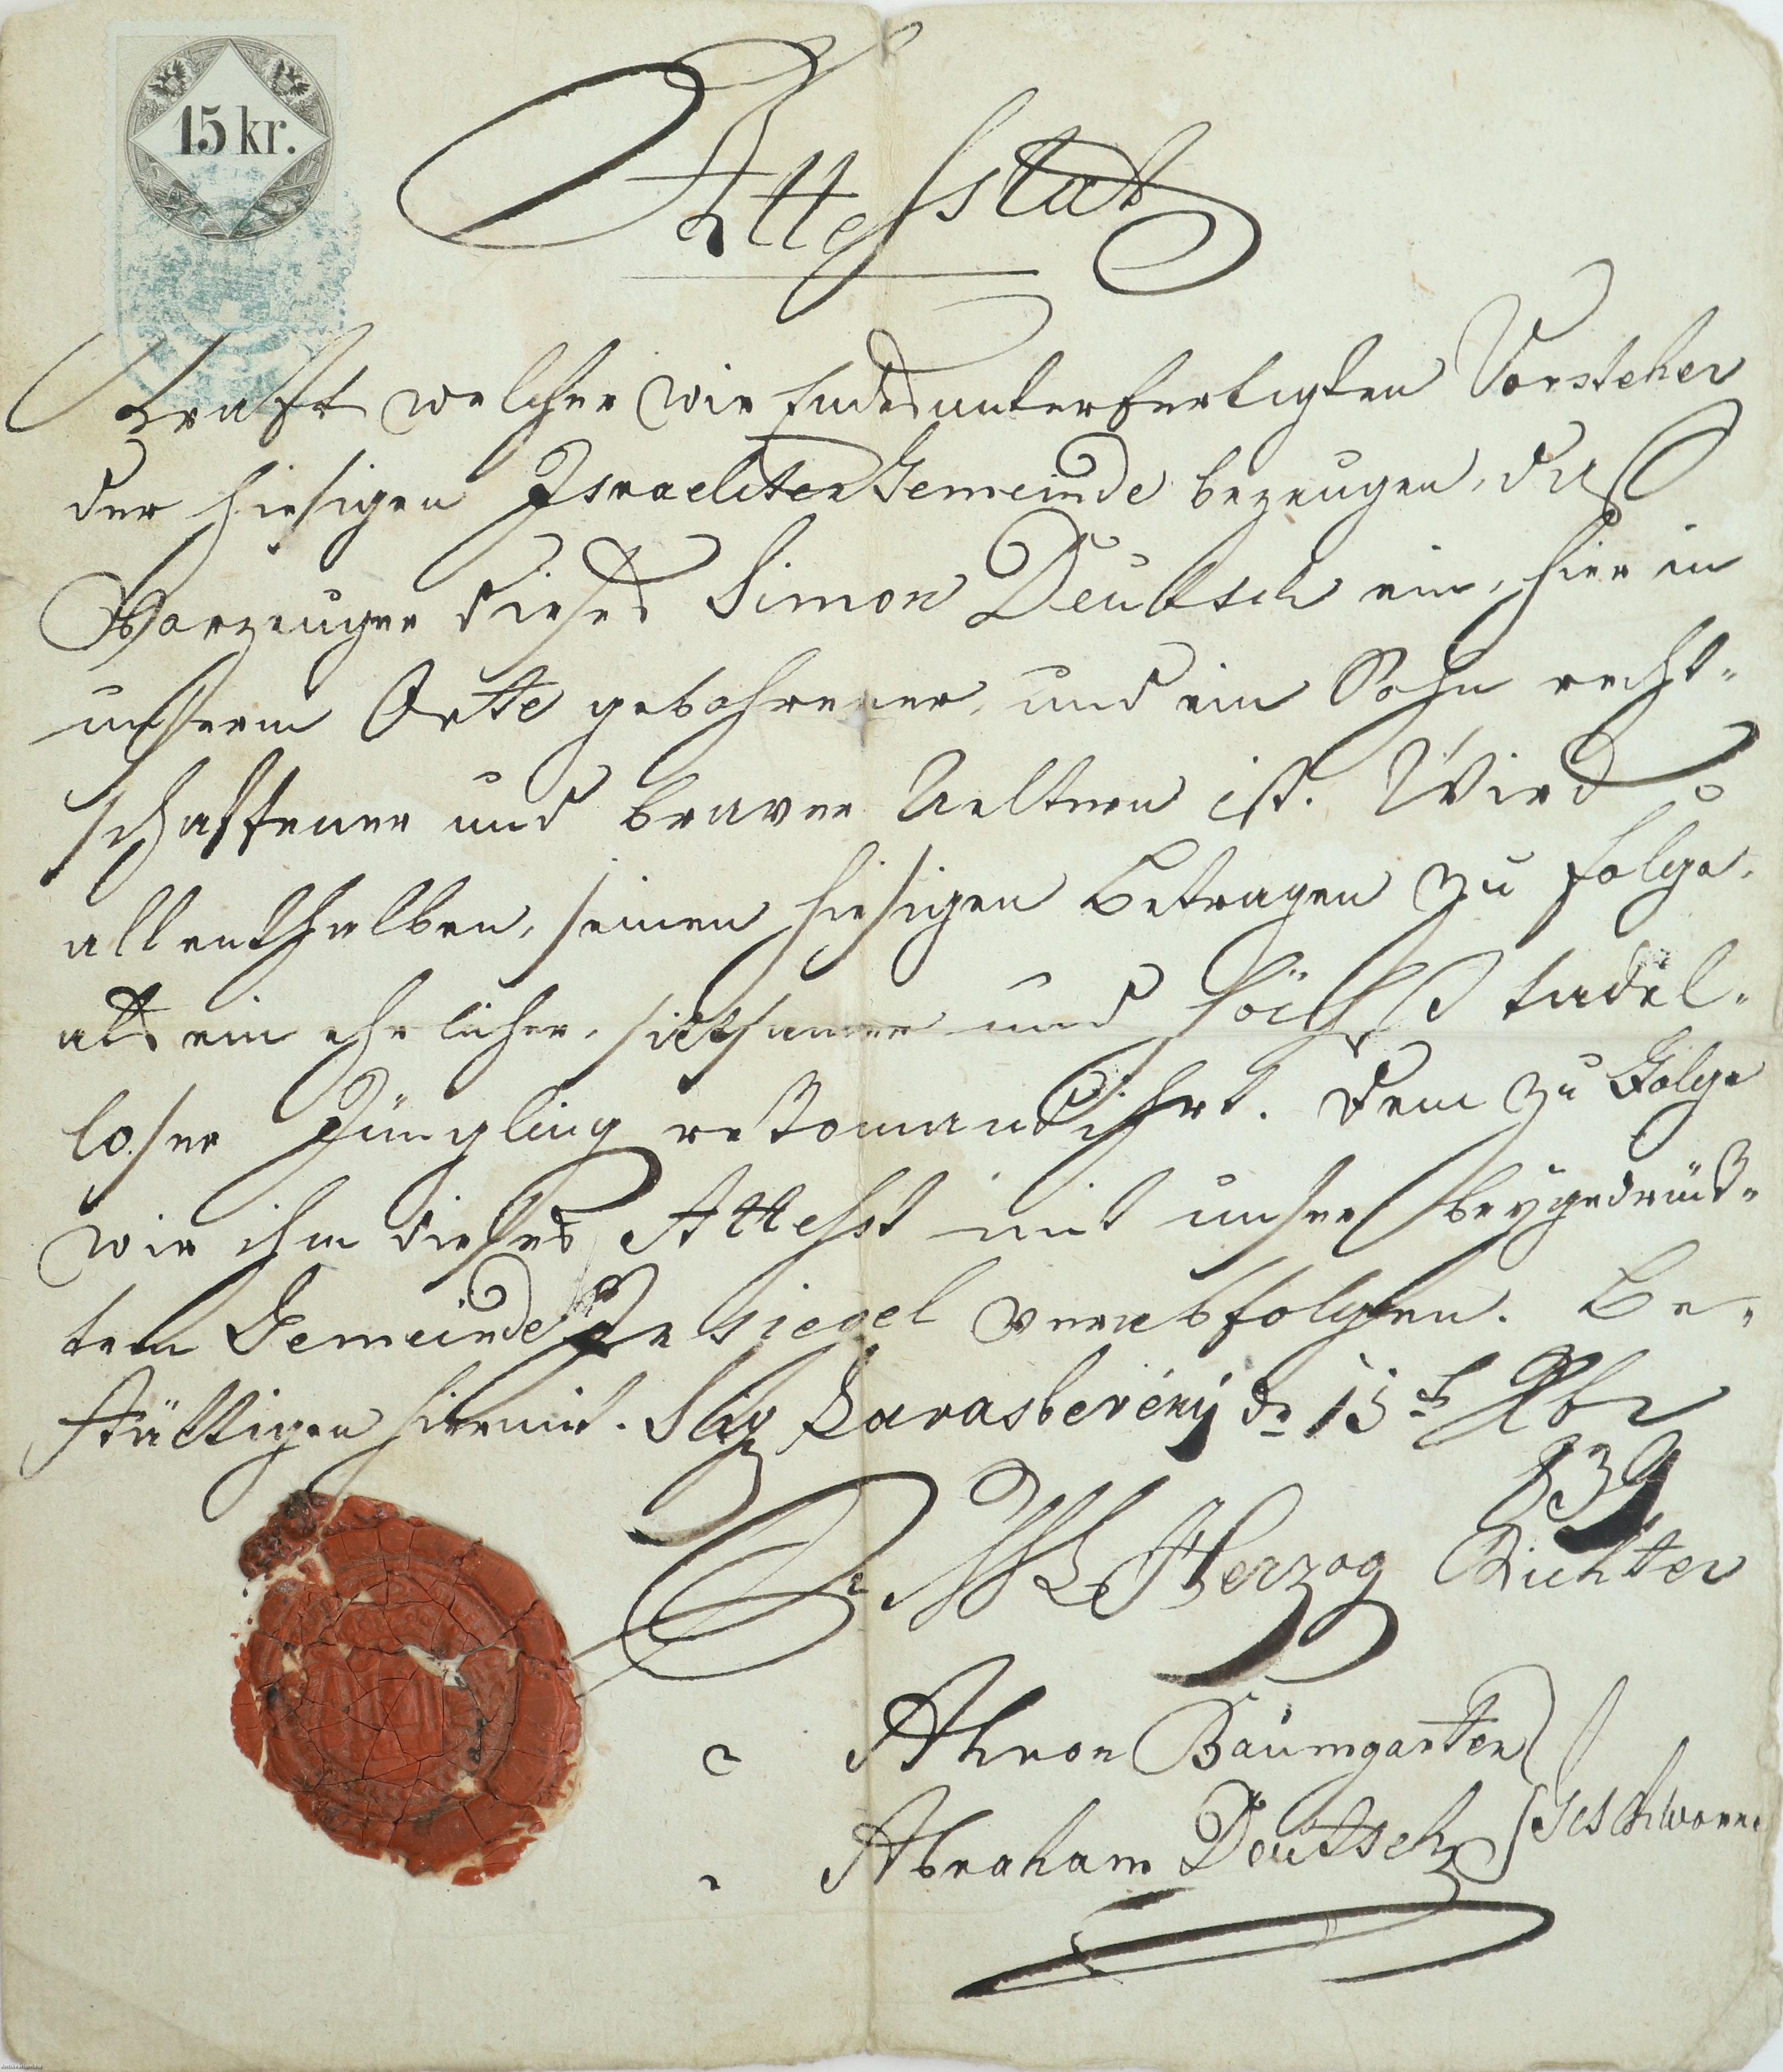 15 kr.
Attesstat
Kraft welcher wir Endesunterfertigten Vorsteher
der hiesigen Israeliten Gemeinde bezeugen, daß
Vorzeuger dieses Simon Deutsch ein, hier in
unserm Orte gebohrener, und ein Sohn recht-
schaffener und braver Aeltern ist. Wird
allenthalben, seinen hiesigen Betragen zu folge,
als ein ehrlicher, sittsamer und höchst tadel-
loser Jüngling rekomandihrt. Dem zu Folge
wir ihm dieses Attesst mit unser beygedrück-
tem Gemeinde In siegel verabfolgen. Be-
stättigen hiermit. Sig Darasberény de 15t
839
Herzog Richter
Ahron Baumgarten
Abraham Deutsch Geschworne